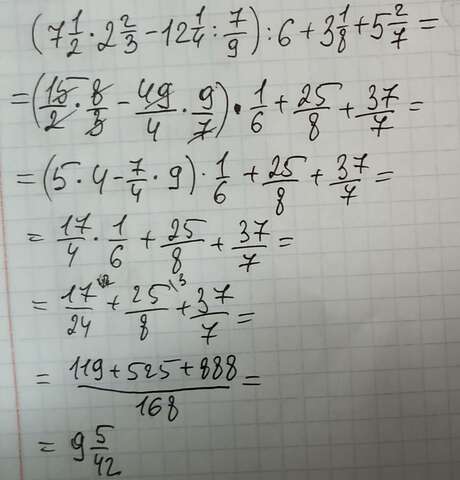 (7 1/2 · 2 2/3 - 12 1/4 : 7/9) : 6 + 3 1/8 + 5 2/7 =
= (15/2 · 8/3 - 49/4 · 9/7) · 1/6 + 25/8 + 37/7 =
= (5 · 4 - 7/4 · 9) · 1/6 + 25/8 + 37/7 =
= 17/4 · 1/6 + 25/8 + 37/7 =
= 17/24 + 25/8 \3 + 37/7 =
= (119 + 525 + 888)/168 =
= 9 5/42